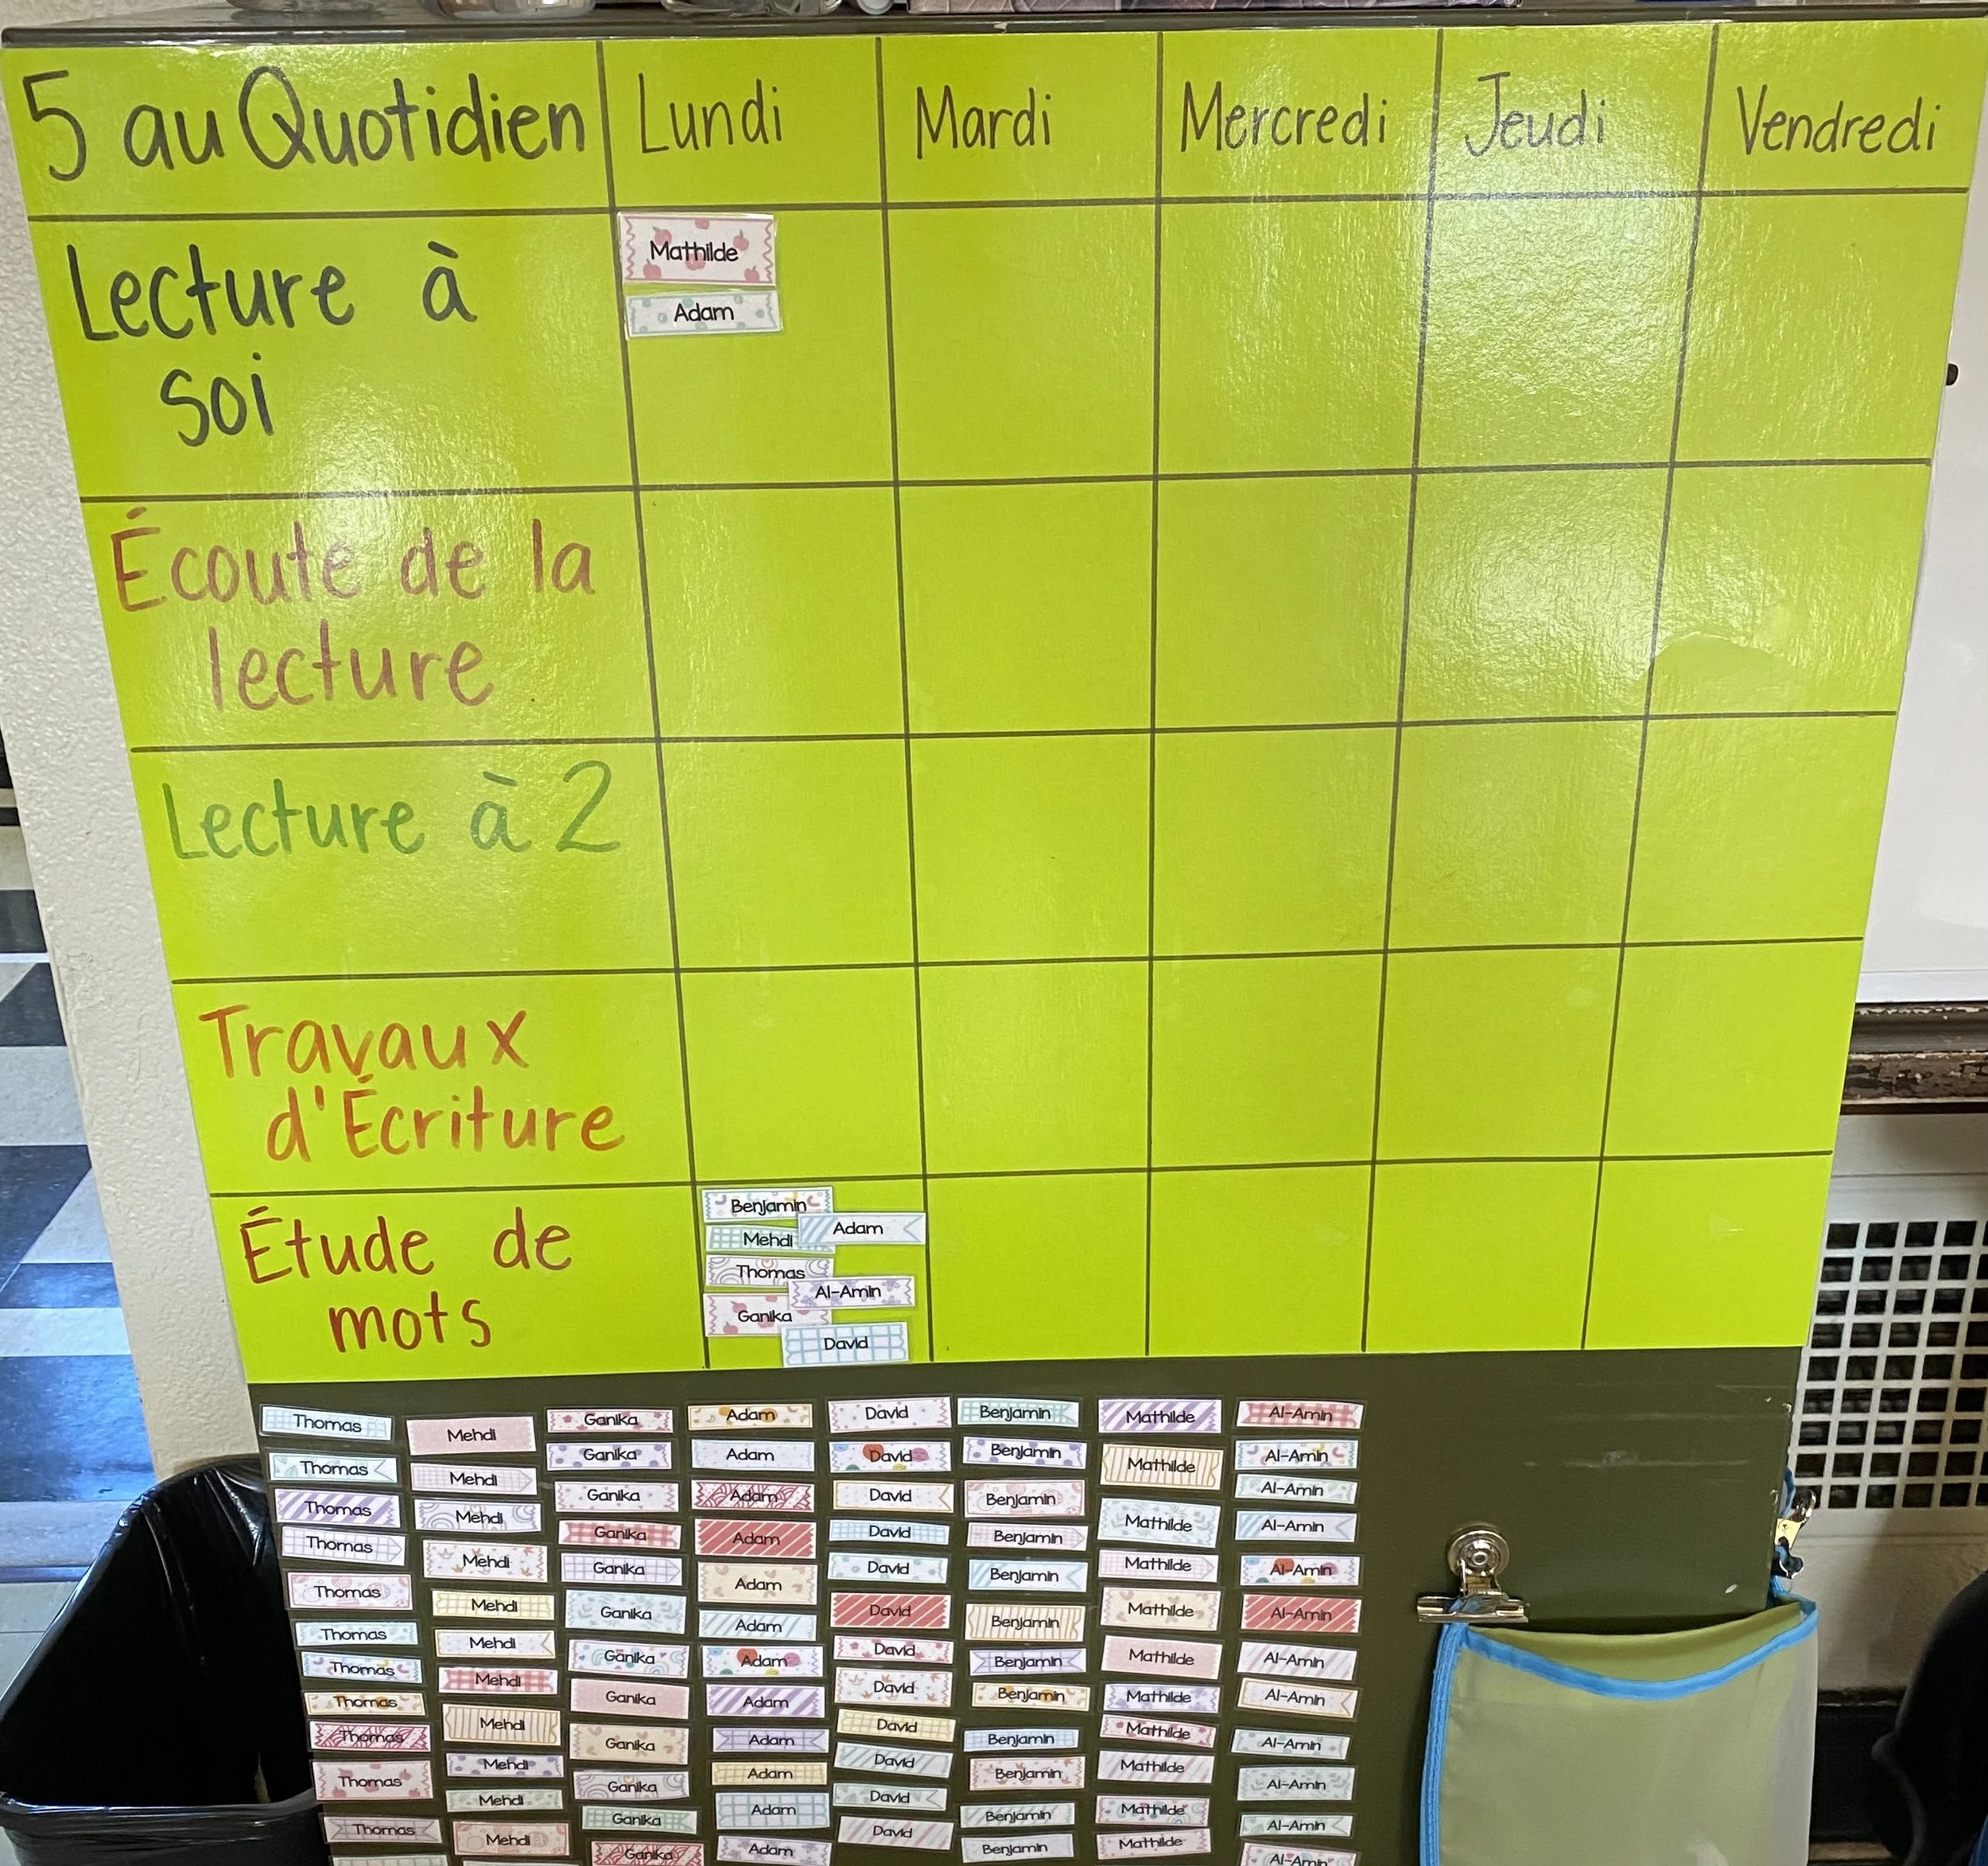 5 au Quotidien
Lundi
Mardi
Mercredi
Jeudi
Vendredi
Lecture à
soi
Mathilde
Adam
Écoute de la
lecture
Lecture à 2
Travaux
d'Écriture
Étude de
mots
Benjamin
Adam
Mehdi
Thomas
Al-Amin
Ganika
David
Thomas Mehdi Ganika Adam David Benjamin Mathilde Al-Amin
Thomas Mehdi Ganika Adam David Benjamin Mathilde Al-Amin
Thomas Mehdi Ganika Adam David Benjamin Mathilde Al-Amin
Thomas Mehdi Ganika Adam David Benjamin Mathilde Al-Amin
Thomas Mehdi Ganika Adam David Benjamin Mathilde Al-Amin
Thomas Mehdi Ganika Adam David Benjamin Mathilde Al-Amin
Thomas Mehdi Ganika Adam David Benjamin Mathilde Al-Amin
Thomas Mehdi Ganika Adam David Benjamin Mathilde Al-Amin
Thomas Mehdi Ganika Adam David Benjamin Mathilde Al-Amin
Thomas Mehdi Ganika Adam David Benjamin Mathilde Al-Amin
Thomas Mehdi Ganika Adam David Benjamin Mathilde Al-Amin
Ganika Adam David Benjamin Al-Amin